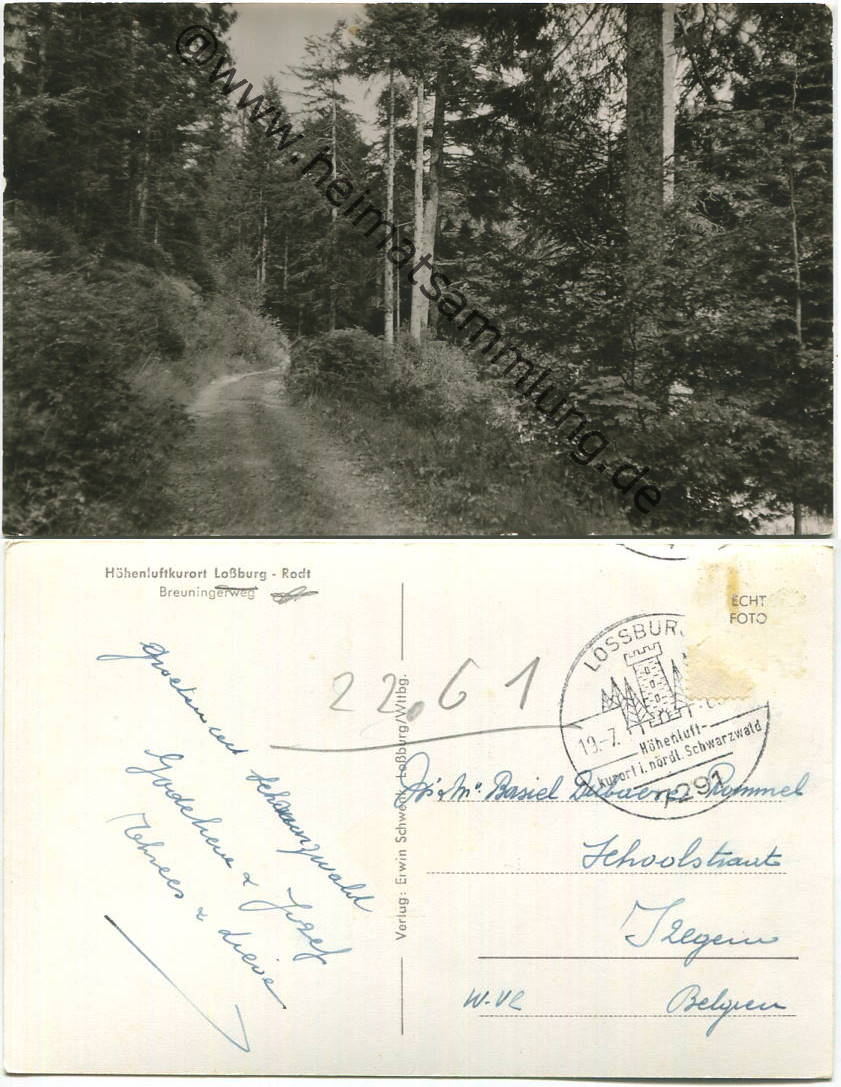 @www.heimatsammlung.de
Höhenluftkurort Loßburg - Rodt
Breuningerweg
ECHT
FOTO
LOSSBURG
19.-7.
Höhenluft-
kurort i. nördl. Schwarzwald
7291
22.61
Verlag: Erwin Schwenk, Loßburg/Wttbg.
Groeten uit Schwarzwald
Godelieve & Jozef
& Lieve
Basiel Rommel
Schoolstraat
Izegem
W-Vl
Belgien